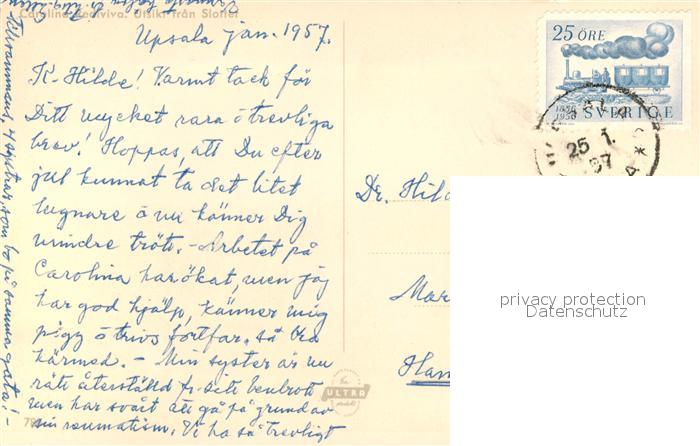 Carolina Rediviva. Utsikt från Slottet
Upsala jan. 1957.
K. Hilde! Varmt tack för
Ditt mycket rara o trevliga
brev! Hoppas, att Du efter
jul kunnat ta det litet
lugnare o nu känner Dig
mindre trött. - Arbetet på
Carolina har ökat, men jag
har god hjälp, känner mig
pigg o trivs fortfar. så bra
härmed. - Min syster är nu
rätt återställd fr. sitt benbrott
men har svårt att gå på grund av
sin reumatism. Vi ha så trevligt
Tillsammans, 4 systrar, som bo på samma gata! -
25 ÖRE
1856
1956
SVERIGE
25. 1.
57
Dr. Hild
Mar
Ham
privacy protection
Datenschutz
ULTRA